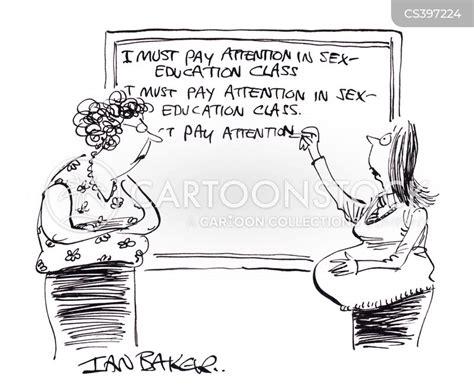 CS397224
I MUST PAY ATTENTION IN SEX-
EDUCATION CLASS
I MUST PAY ATTENTION IN SEX-
EDUCATION CLASS.
PAY ATTENTION
CARTOONSTOCK
CARTOON COLLECTION
IAN BAKER..